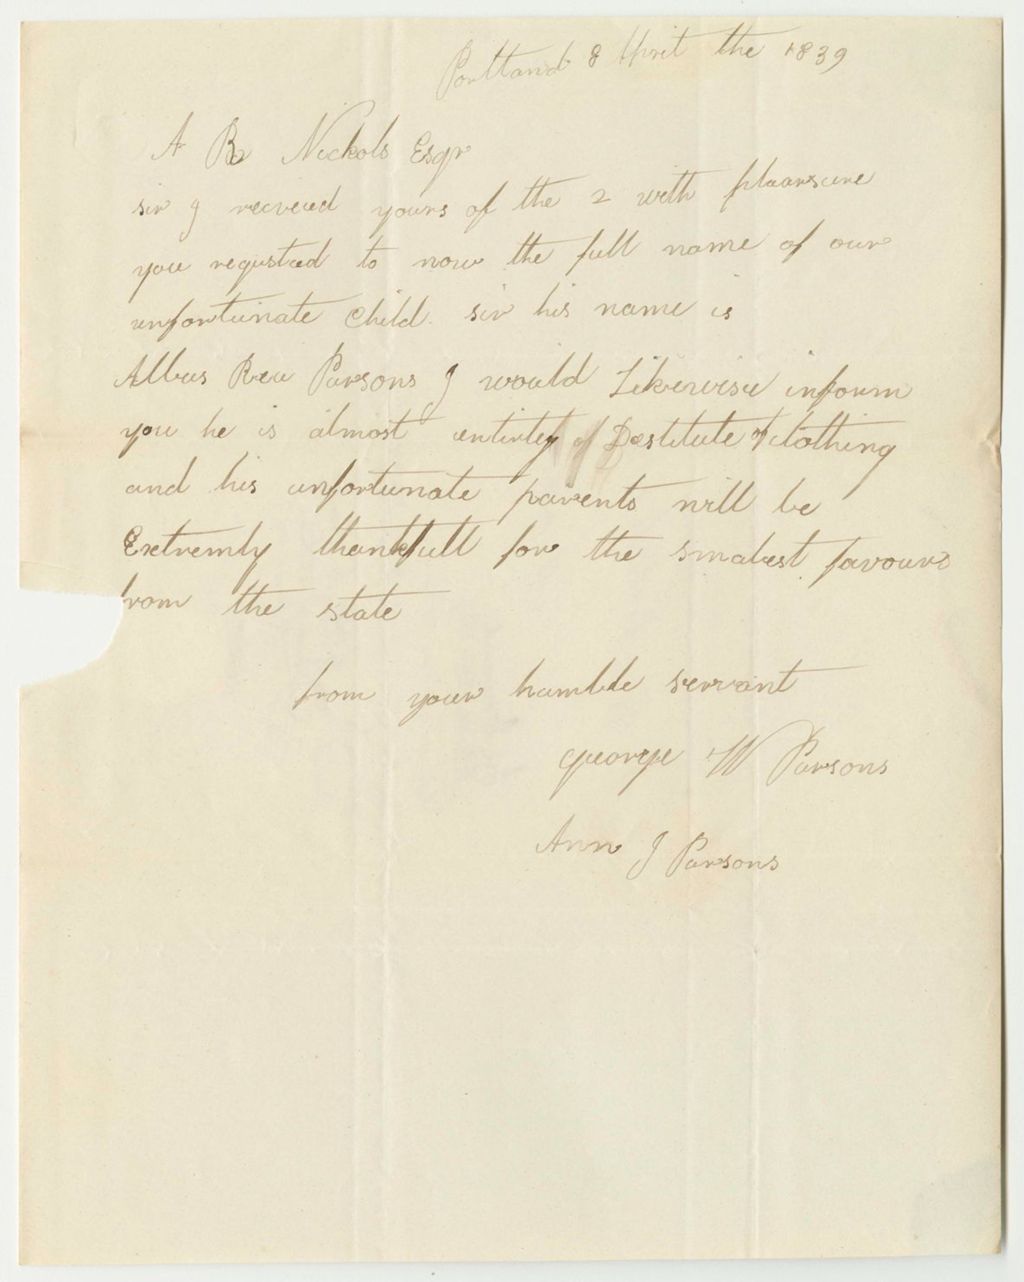 Portland 8 April the 1839
A R Nickols Esqr
sir I recveied yours of the 2 with pleansure
you requsted to now the full name of our
unfortunate Child sir his name is
Albus Rea Parsons I would Likewise inform
you he is almost entirley Destitute of clothing
and his unfortunate parents will be
Extremly thankfull for the smalest favours
from the state
from your humble servant
George W Parsons
Ann J Parsons